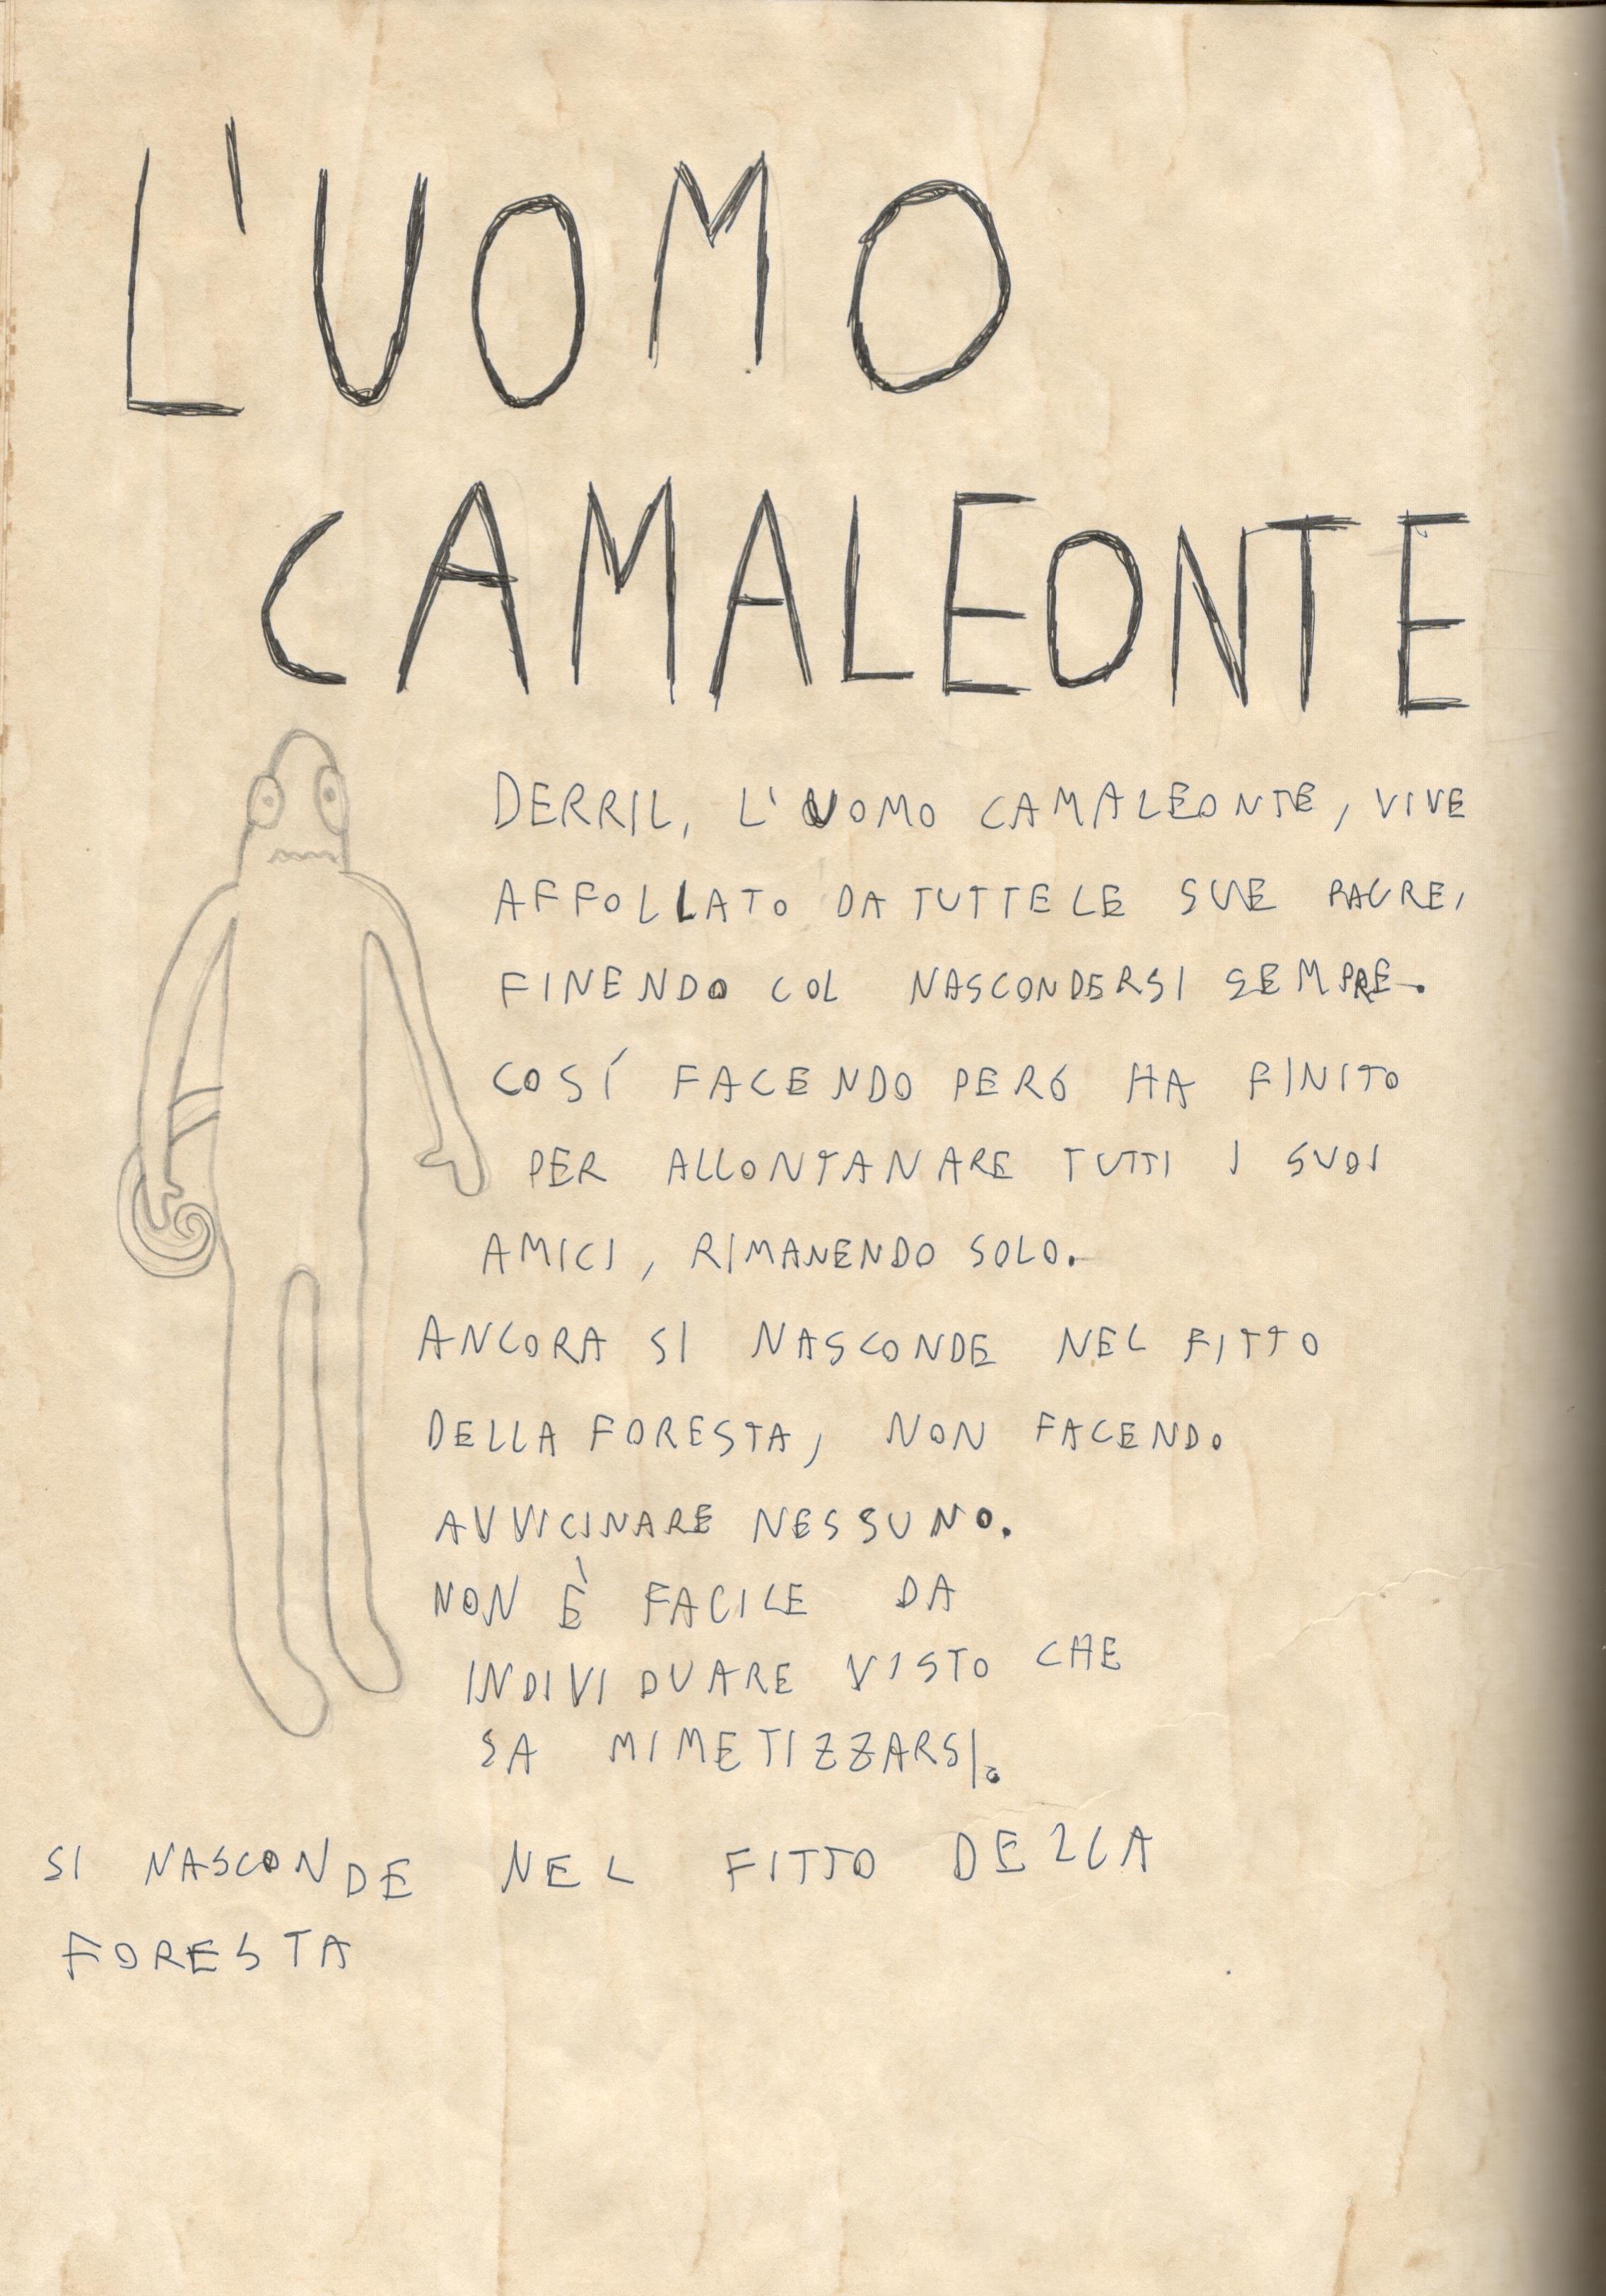 L'UOMO
CAMALEONTE
DERRIL, L'UOMO CAMALEONTE, VIVE
AFFOLLATO DA TUTTE LE SUE PAURE,
FINENDO COL NASCONDERSI SEMPRE.
COSÍ FACENDO PERÓ HA FINITO
PER ALLONTANARE TUTTI I SUOI
AMICI, RIMANENDO SOLO.
ANCORA SI NASCONDE NEL FITTO
DELLA FORESTA, NON FACENDO
AVVICINARE NESSUNO.
NON È FACILE DA
INDIVIDUARE VISTO CHE
SA MIMETIZZARSI.
SI NASCONDE NEL FITTO DELLA
FORESTA